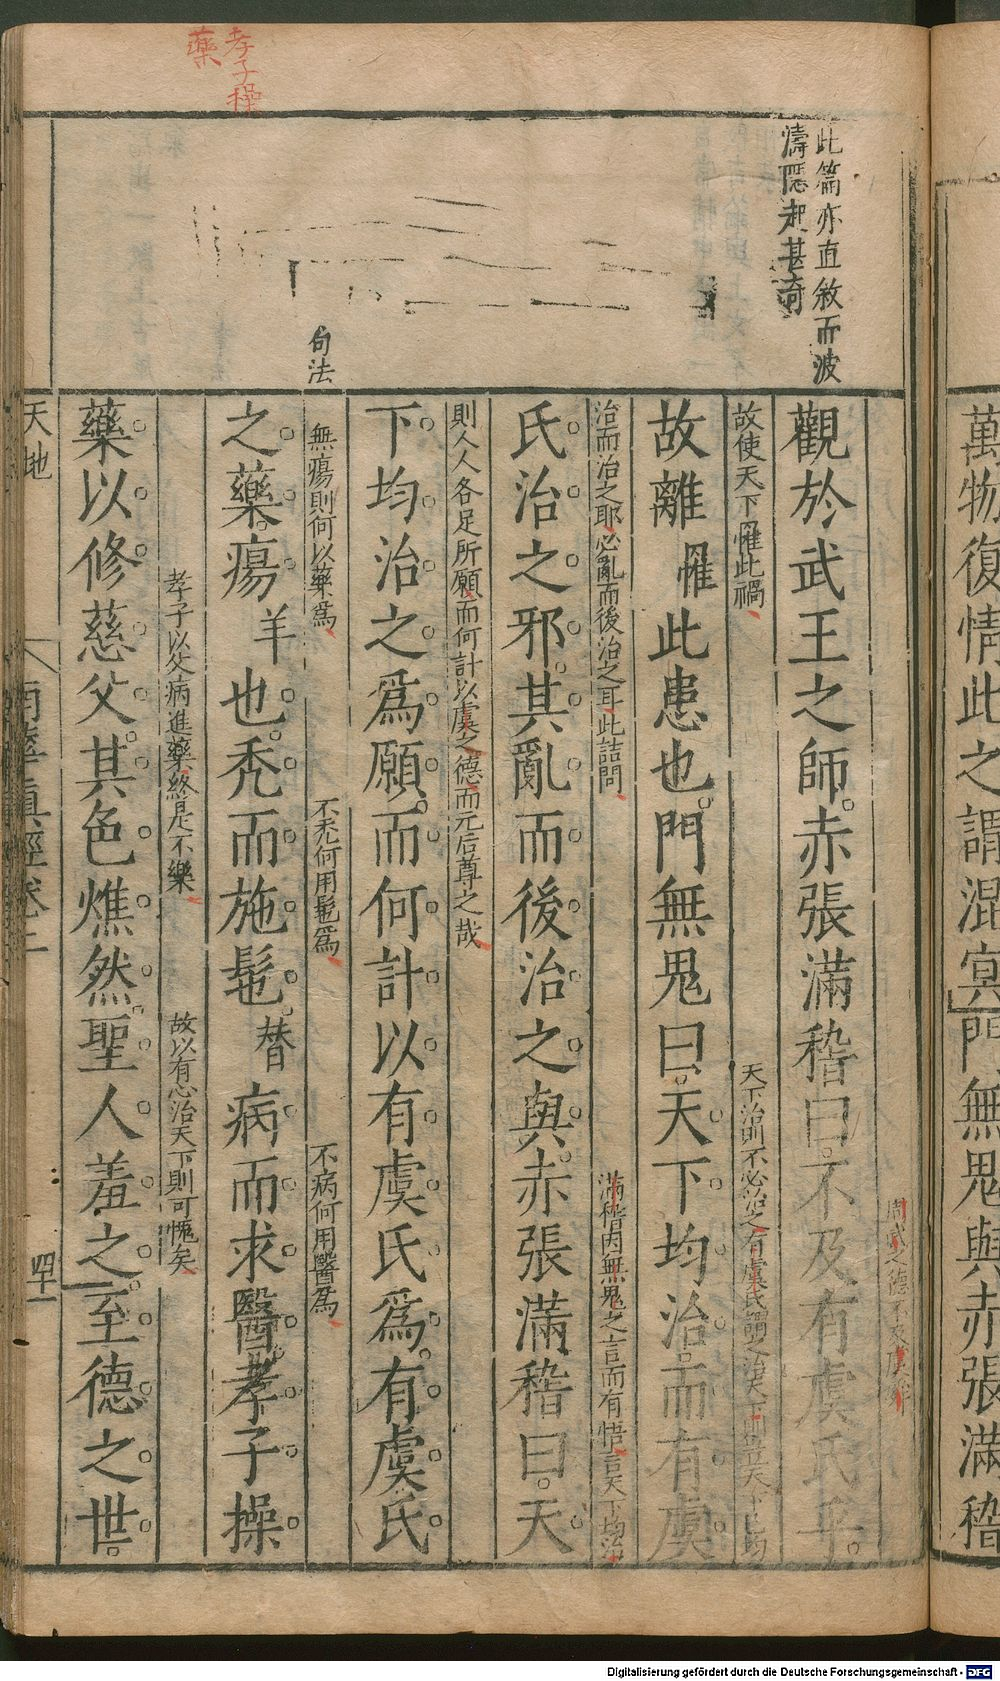 萬物復情此之謂混冥門無鬼與赤張滿稽
孝子操
藥
此篇亦直敘而波
濤隱起甚奇
句法
觀於武王之師赤張滿稽曰不及有虞氏乎
故使天下罹此禍
天下治則不必治之有虞氏
故離罹此患也門無鬼曰天下均治而有虞
治而治之耶必亂而後治之耳此詰問
滿稽因無鬼之言而有悟言天下均治
氏治之邪其亂而後治之與赤張滿稽曰天
則人人各足所願而何計以虞之德而元后尊之哉
下均治之為願而何計以有虞氏為有虞氏
無瘍則何以藥為
不禿何用髢為
不病何用醫為
之藥瘍羊也禿而施髢替病而求醫孝子操
孝子以父病進藥終是不樂
故以有心治天下則可愧矣
藥以修慈父其色燋然聖人羞之至德之世
天地
南華真經卷二
四十一
Digitalisierung gefördert durch die Deutsche Forschungsgemeinschaft - DFG